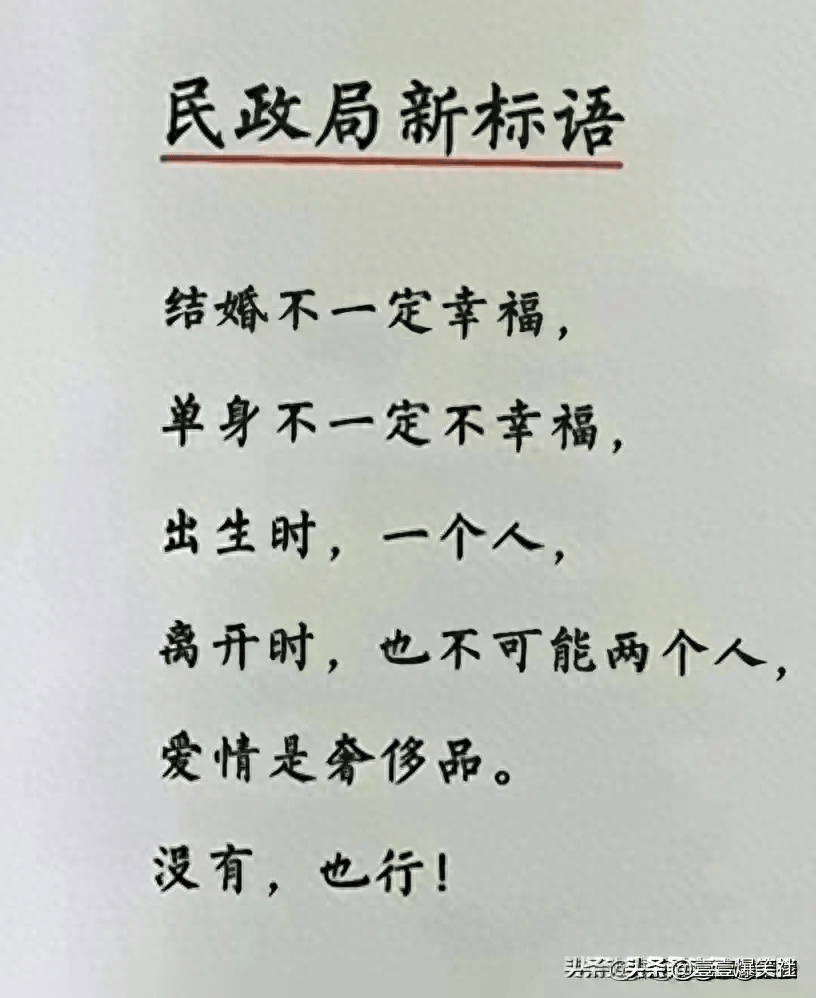 民政局新标语
结婚不一定幸福，
单身不一定不幸福，
出生时，一个人，
离开时，也不可能两个人，
爱情是奢侈品。
没有，也行！
头条@壹壹爆笑社